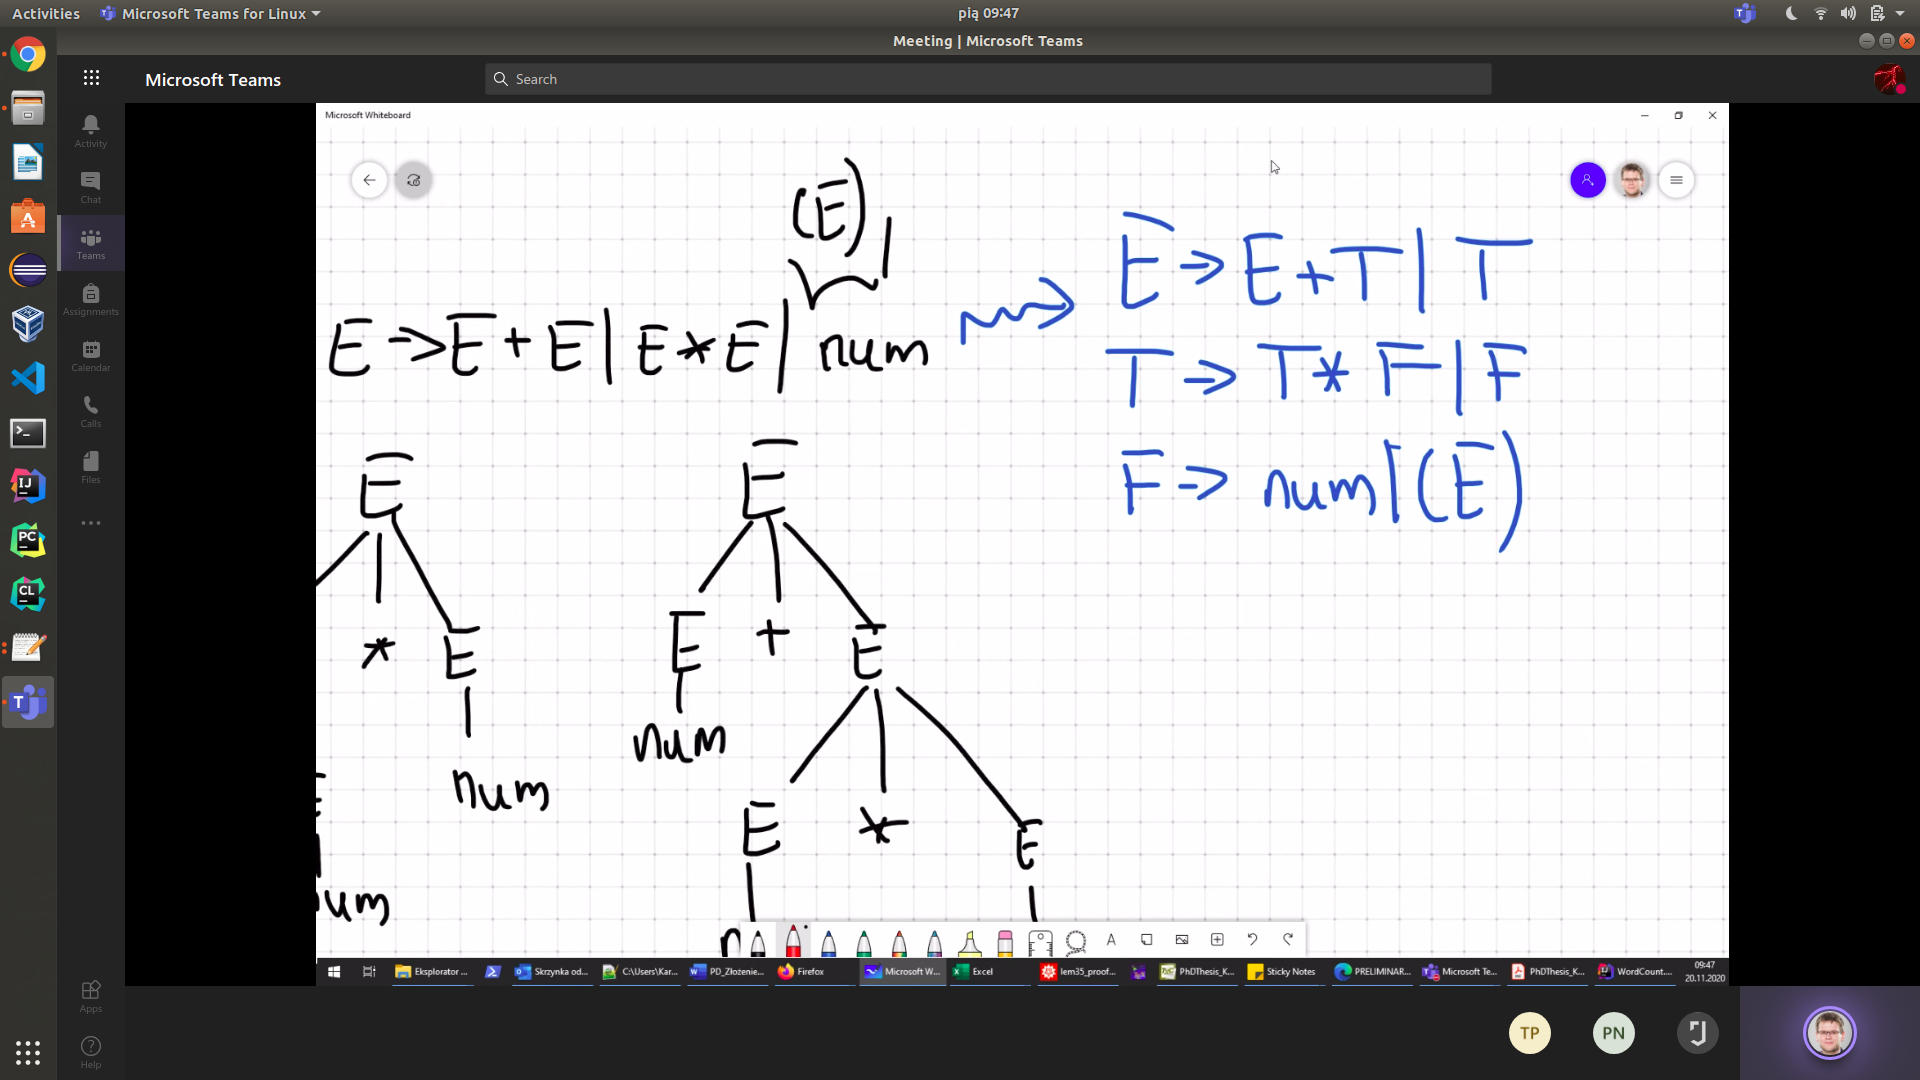 Activities
Microsoft Teams for Linux
pią 09:47
Meeting | Microsoft Teams
Microsoft Teams
Search
Activity
Chat
Teams
Assignments
Calendar
Calls
Files
Apps
Help
Microsoft Whiteboard
(E) |
E -> E + E | E * E | num
E -> E + T | T
T -> T * F | F
F -> num | (E)
E
E
* E
E + E
num
num
E * E
num
A
Eksplorator ...
Skrzynka od...
C:\Users\Kar...
PD_Złożenie...
Firefox
Microsoft W...
Excel
lem35_proof...
PhDThesis_K...
Sticky Notes
PRELIMINAR...
Microsoft Te...
PhDThesis_K...
WordCount....
09:47
20.11.2020
TP
PN